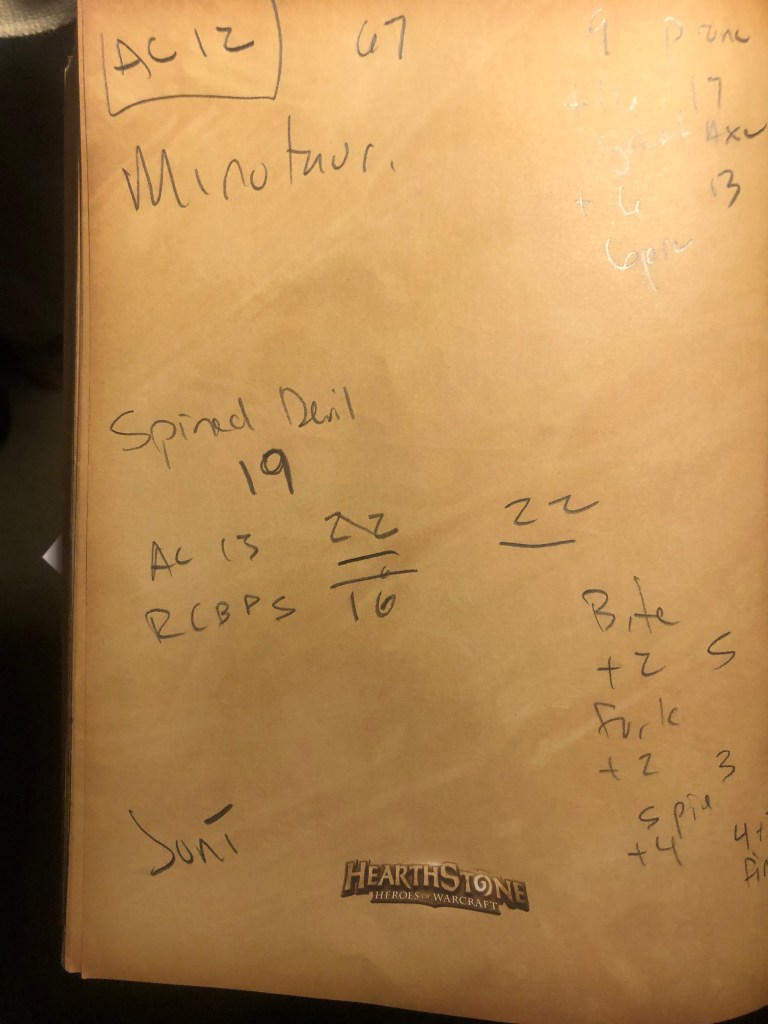 AC 12 67 9 Prone
17
Minotaur. great Axe
+6 13
Gore
Spined Devil
19
AC 13 22 22
RCBPS 16
Bite
+2 5
Fork
+2 3
Spine
+4 4+
Joni
HEARTHSTONE
HEROES OF WARCRAFT